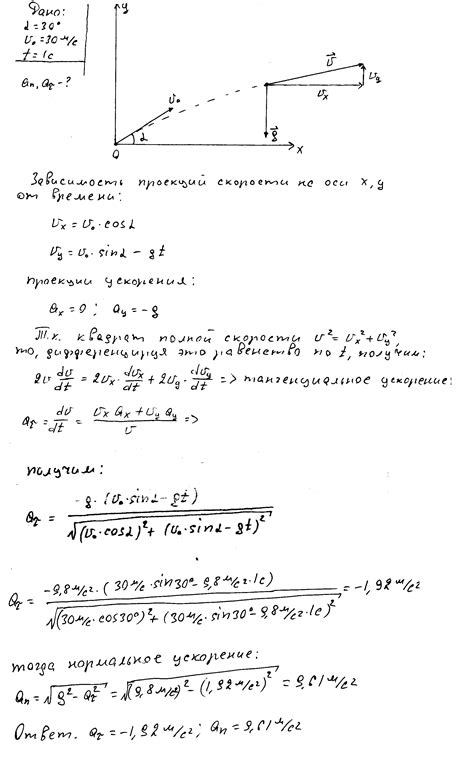 Дано:
α = 30°
v₀ = 30 м/с
t = 1с
aₙ, a_τ - ?
y
v₀
α
0
x
v⃗
v_y
v_x
g⃗
Зависимость проекций скорости на оси x, y
от времени:
v_x = v₀ · cosα
v_y = v₀ · sinα - gt
проекции ускорения:
a_x = 0 ; a_y = -g
Т.к. квадрат полной скорости v² = v_x² + v_y²,
то, дифференцируя это равенство по t, получим:
2v dv/dt = 2v_x · dv_x/dt + 2v_y · dv_y/dt => тангенциальное ускорение:
a_τ = dv/dt = (v_x a_x + v_y a_y)/v =>
получим:
a_τ = -g · (v₀ · sinα - gt) / √((v₀ · cosα)² + (v₀ · sinα - gt)²)
a_τ = -9,8м/с² · (30м/с · sin30° - 9,8м/с² · 1с) / √((30м/с · cos30°)² + (30м/с · sin30° - 9,8м/с² · 1с)²) = -1,92м/с²
тогда нормальное ускорение:
aₙ = √(g² - a_τ²) = √((9,8м/с²)² - (1,92м/с²)²) = 9,61м/с²
Ответ. a_τ = -1,92м/с² ; aₙ = 9,61м/с²